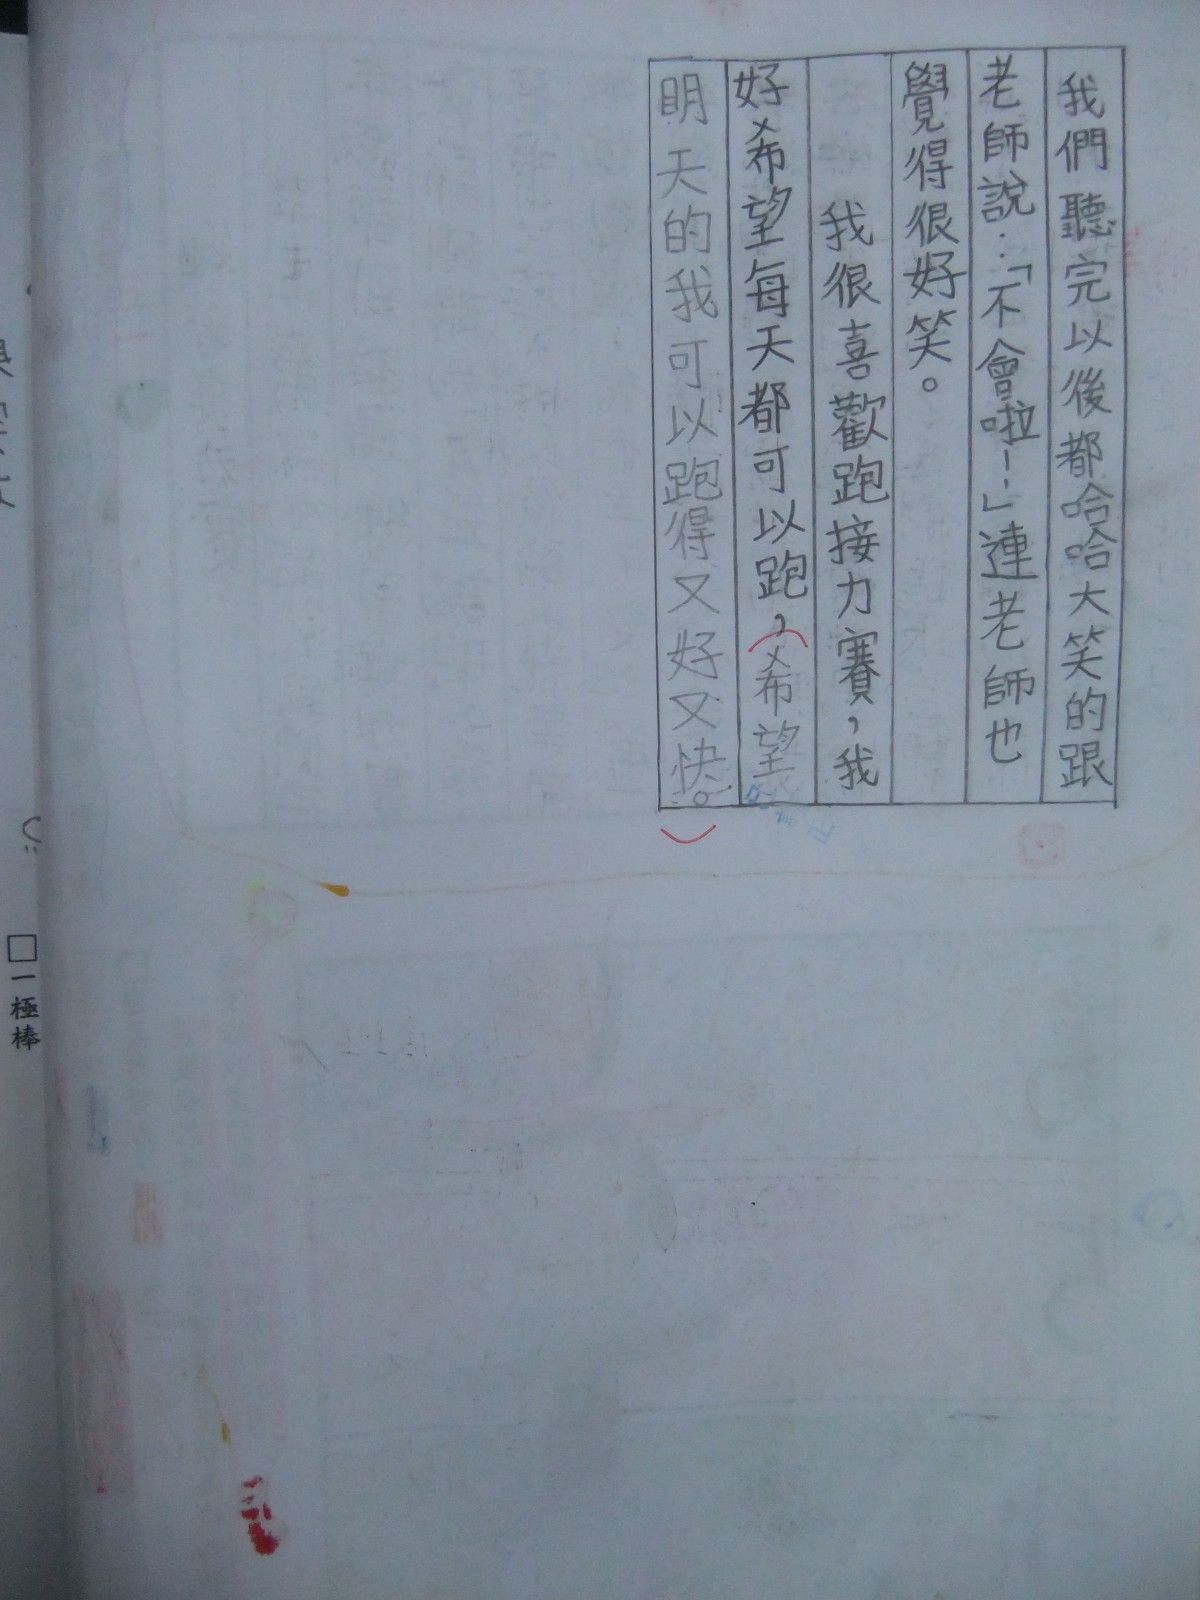 我們聽完以後都哈哈大笑的跟
老師說：「不會啦！」連老師也
覺得很好笑。
我很喜歡跑接力賽，我
好希望每天都可以跑，希望
明天的我可以跑得又好又快。
□一極棒